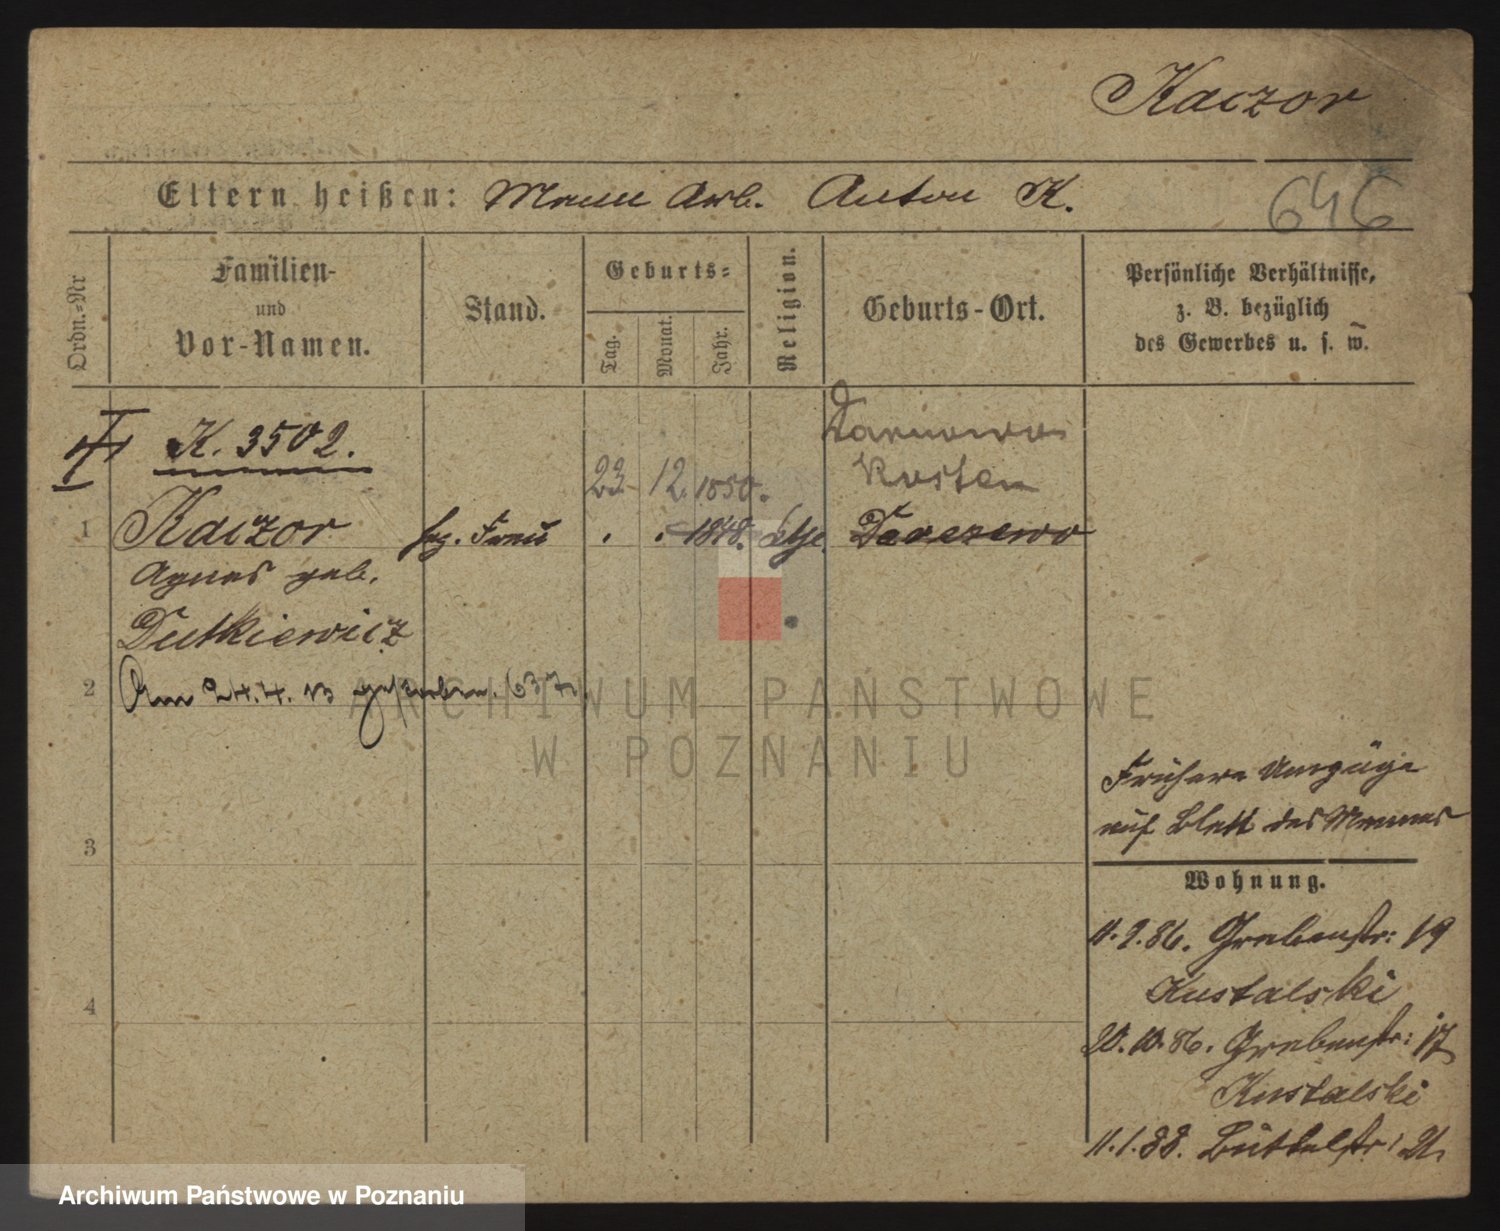 Kaczor
Eltern heißen: Mann Arb. Anton K.
646
Ordn.-Nr
Familien-
und
Vor-Namen.
Stand.
Geburts-
Tag.
Monat.
Jahr.
Religion.
Geburts-Ort.
Persönliche Verhältnisse,
z. B. bezüglich
des Gewerbes u. s. w.
K. 3502.
Tarnowo
Kosten
23 12. 1850.
1 Kaczor Frau 1848. ktſe
Agnes geb.
Dutkiewicz
2 Am 24.4. 13 gestorben.
Frühere Umzüge
auf Blatt des Mannes
3
Wohnung.
11.9.86. Grabenstr: 19
Kustalski
4
20.10.86. Grabenstr: 17
Kustalski
11.1.88. Büttelstr: 21.
ARCHIWUM PAŃSTWOWE
W POZNANIU
Archiwum Państwowe w Poznaniu